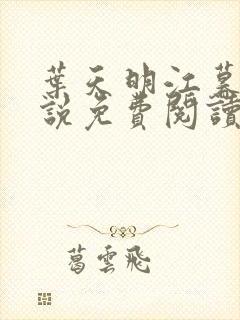 葉天明江慕
說免費閱讀
葛雲飛